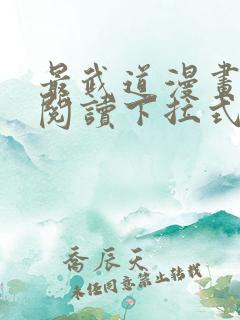 最武道漫畫
閱讀下拉式
喬辰天
未經同意禁止轉載